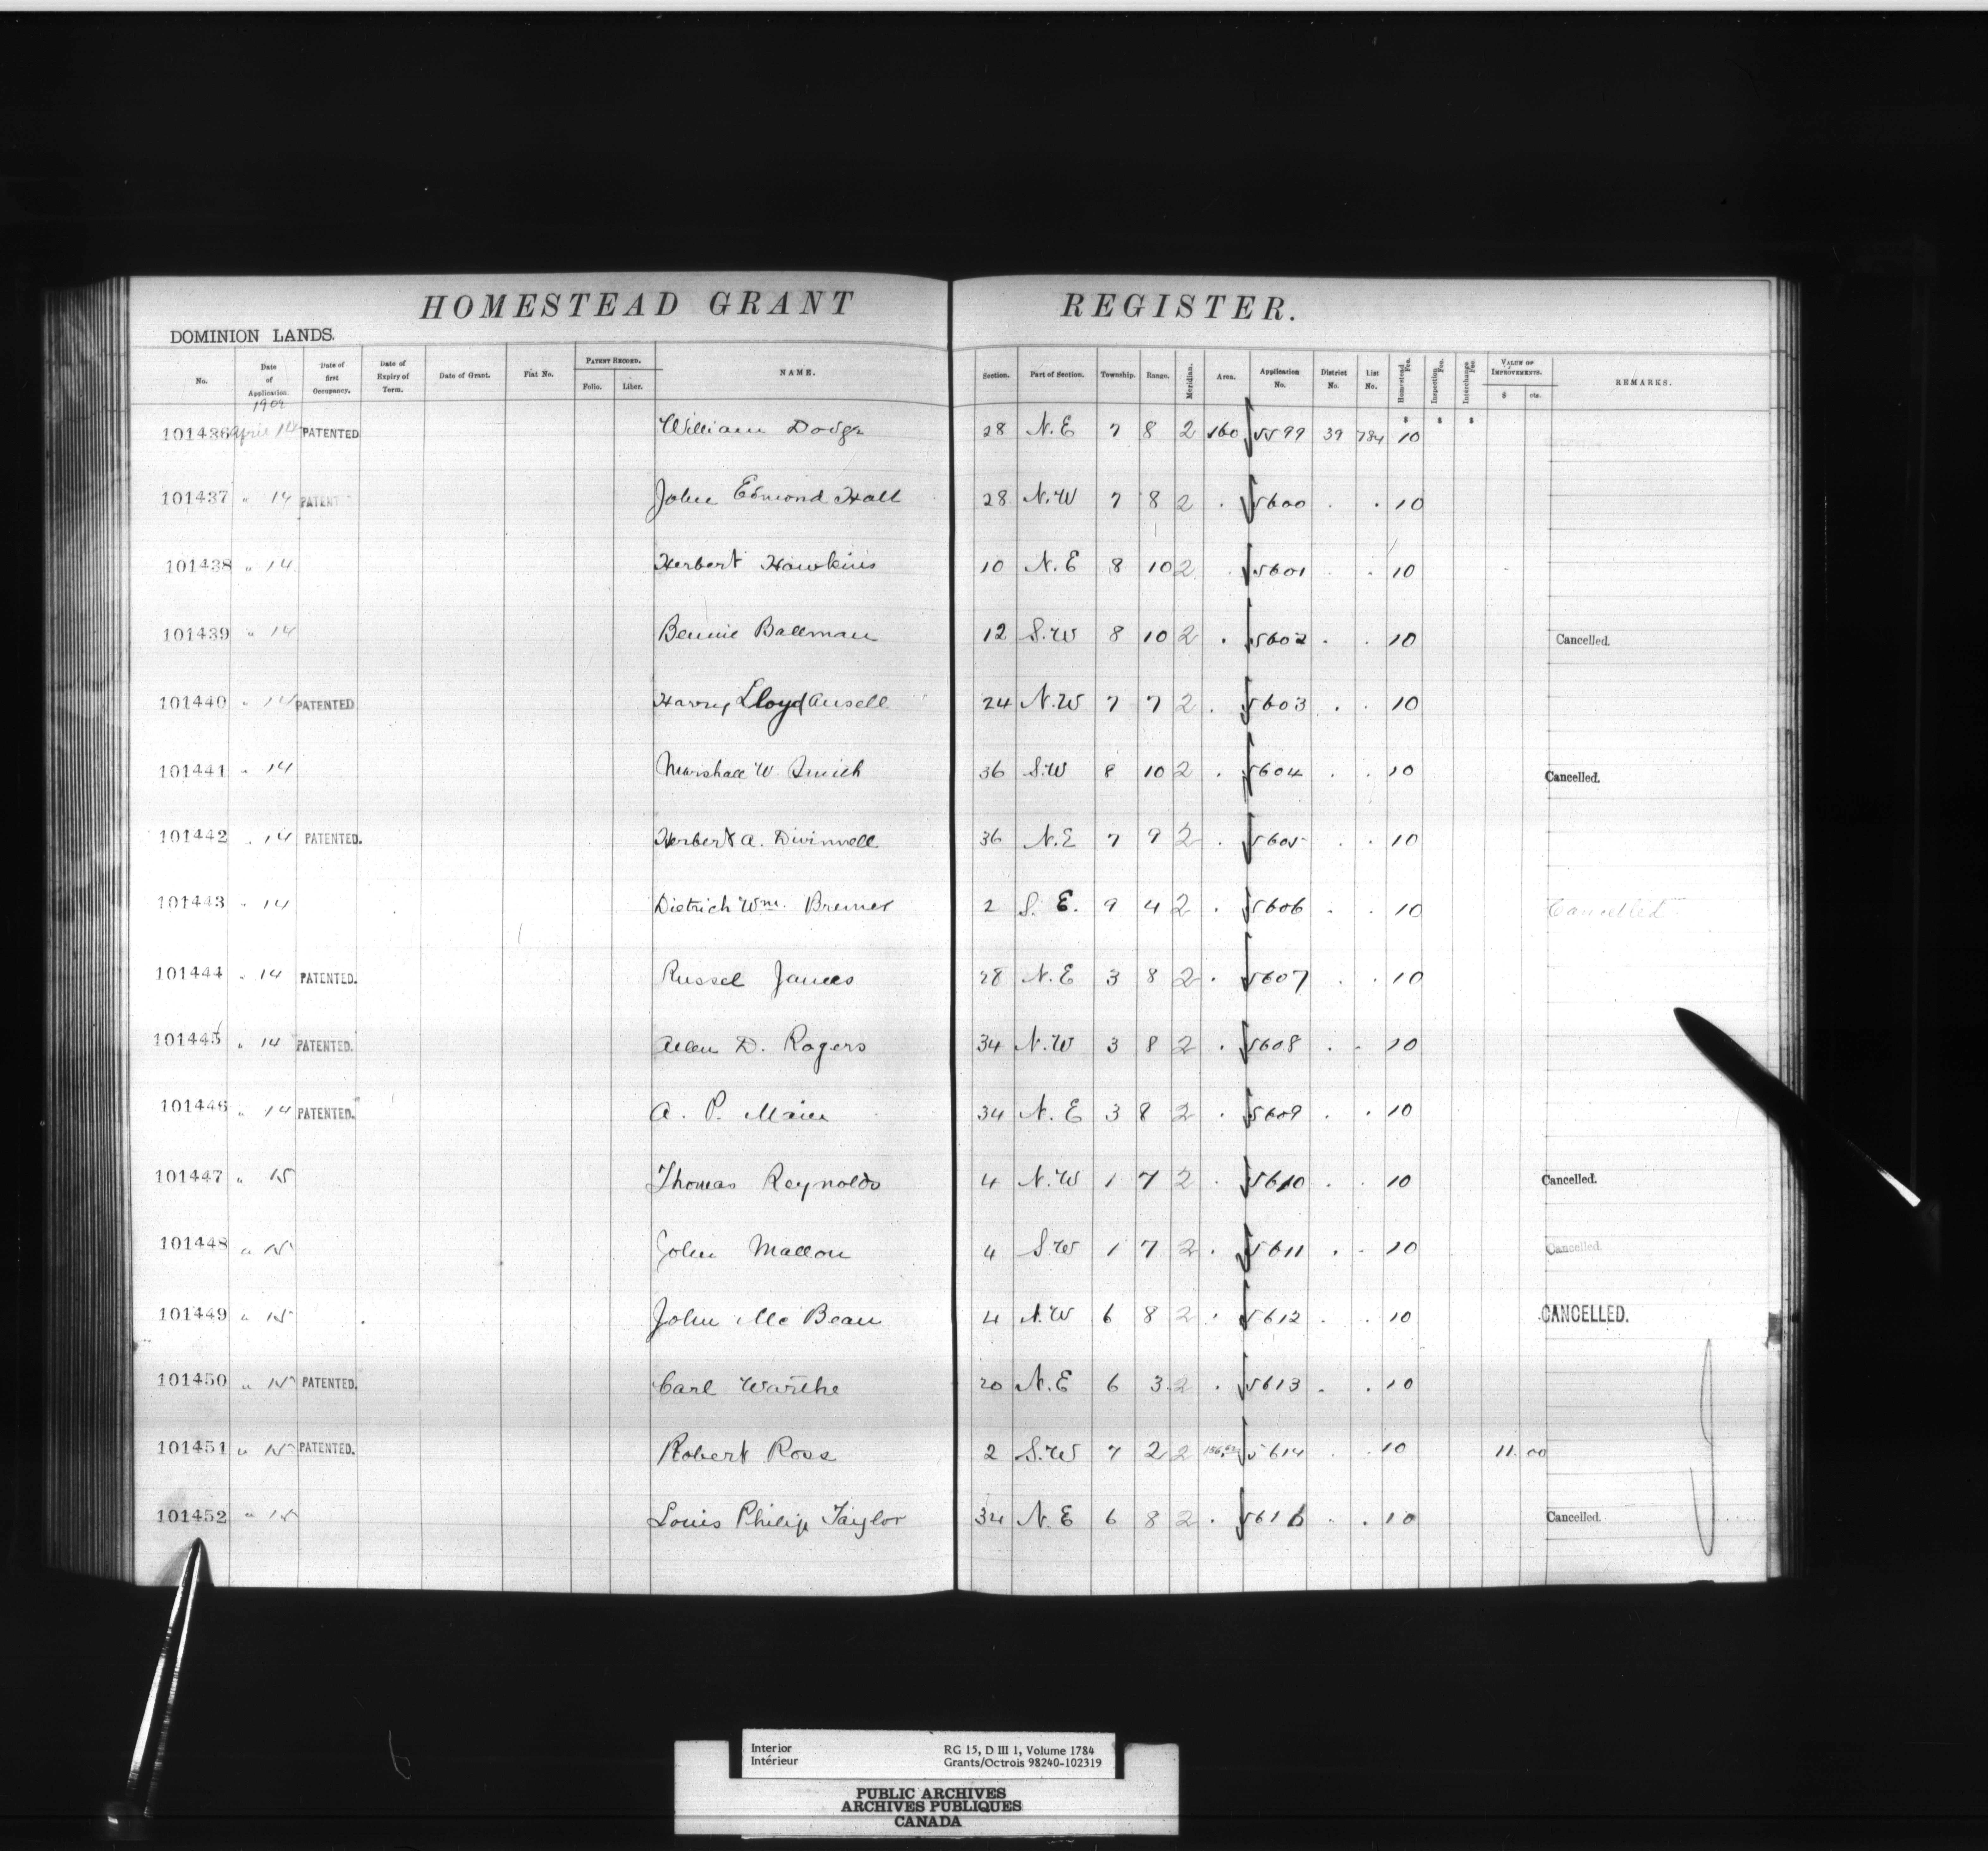 HOMESTEAD GRANT REGISTER.
DOMINION LANDS.
No. Date of Application. Date of first Occupancy. Date of Expiry of Term. Date of Grant. Fiat No. PATENT RECORD. Folio. Liber. NAME. Section. Part of Section. Township. Range. Meridian. Area. Application No. District No. List No. Homestead Fee. Inspection Fee. Interchange Fee. VALUE OF IMPROVEMENTS. $ cts. REMARKS.
1902
$ $ $
101436 April 14 PATENTED William Dodge 28 N.E 7 8 2 160 5599 39 784 10
101437 " 14 PATENT John Edmond Hall 28 N.W 7 8 2 . 5600 . . 10
101438 " 14 Herbert Hawkins 10 N.E 8 10 2 . 5601 . . 10
101439 " 14 Bennie Ballman 12 S.W 8 10 2 . 5602 . . 10 Cancelled.
101440 " 14 PATENTED Harry Lloyd Ansell 24 N.W 7 7 2 . 5603 . . 10
101441 " 14 Marshall W. Smith 36 S.W 8 10 2 . 5604 . . 10 Cancelled.
101442 " 14 PATENTED. Herbert A. 36 N.E 7 9 2 . 5605 . . 10
101443 " 14 Dietrich Wm. Bremer 2 S. E. 9 4 2 . 5606 . . 10 Cancelled
101444 " 14 PATENTED. Russel James 28 N.E 3 8 2 . 5607 . . 10
101445 " 14 PATENTED. Allen D. Rogers 34 N.W 3 8 2 . 5608 . . 10
101446 " 14 PATENTED. A. P. 34 N. E 3 8 2 . 5609 . . 10
101447 " 15 Thomas Reynolds 4 N.W 1 7 2 . 5610 . . 10 Cancelled.
101448 " 15 John Mallon 4 S.W 1 7 2 . 5611 . . 10 Cancelled.
101449 " 15 John McBean 4 N.W 6 8 2 . 5612 . . 10 CANCELLED.
101450 " 15 PATENTED. Carl Warthe 20 N.E 6 3 2 . 5613 . . 10
101451 " 15 PATENTED. Robert Ross 2 S.W 7 2 2 5614 . . 10 11. 00
101452 " 15 Louis Philip Taylor 34 N.E 6 8 2 . . . 10 Cancelled.
Interior RG 15, D III 1, Volume 1784
Intérieur Grants/Octrois 98240-102319
PUBLIC ARCHIVES
ARCHIVES PUBLIQUES
CANADA